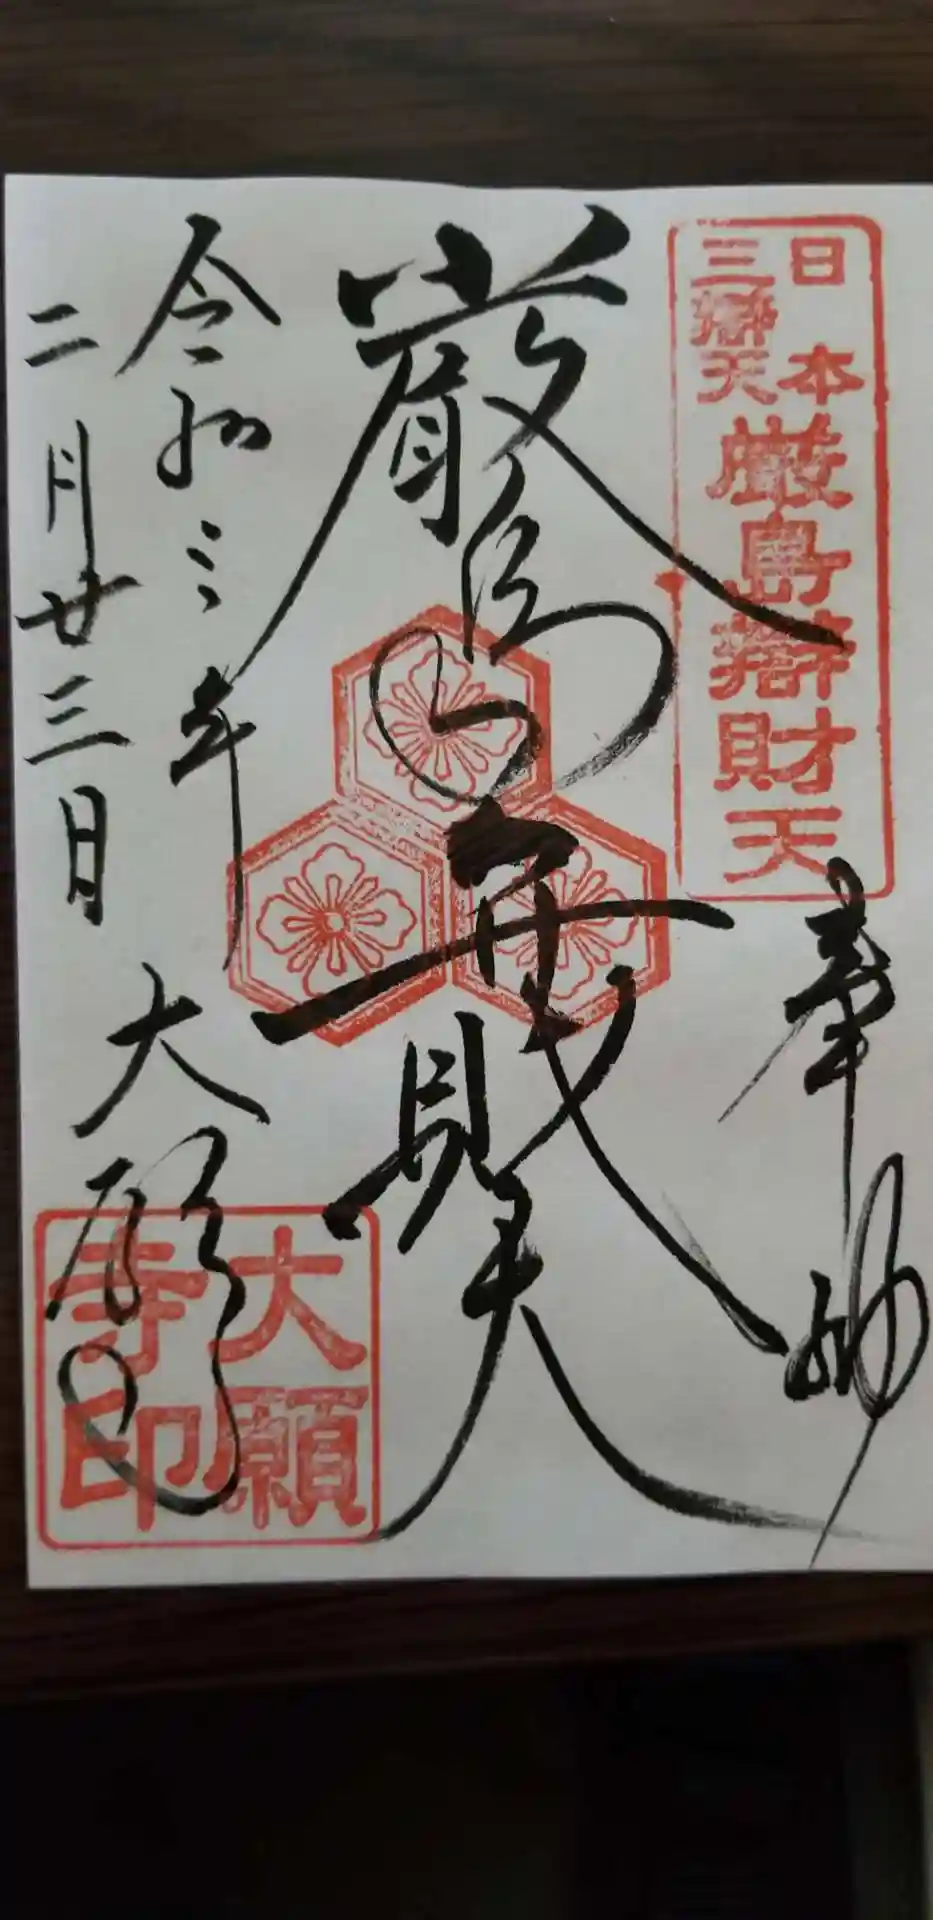 日本
三辯天
厳島辯財天
奉納
厳島弁財天
令和三年
二月廿三日
大願寺
大願
寺印